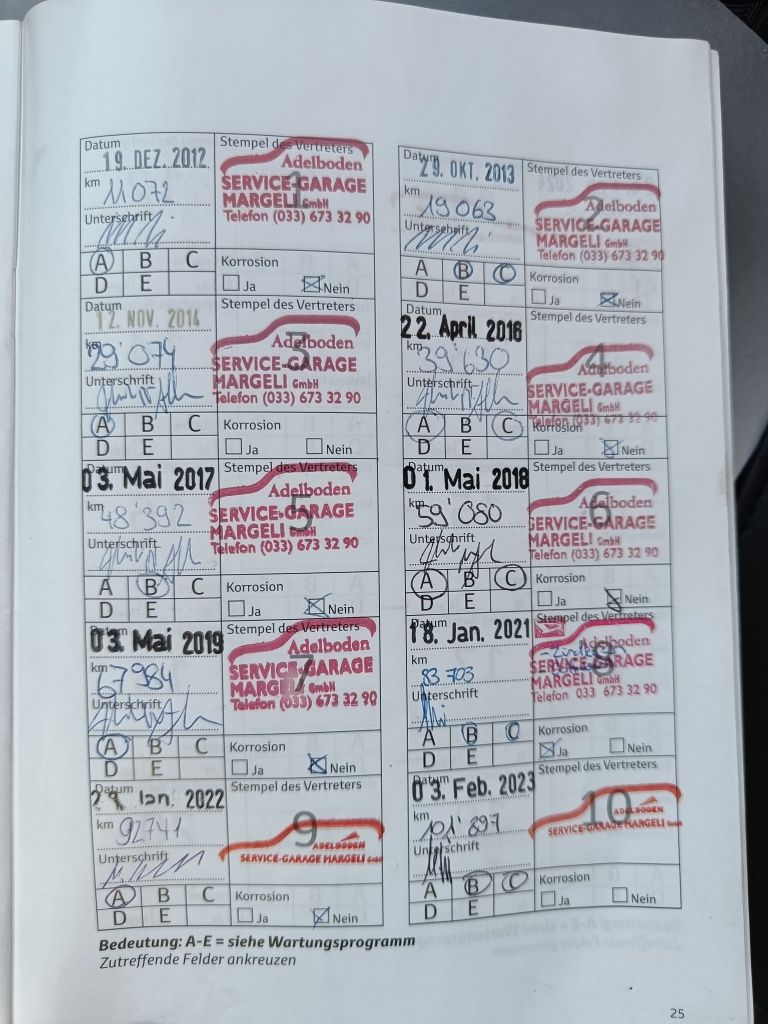 Datum
19. DEZ. 2012
km
11072
Unterschrift
A B C
D E
Stempel des Vertreters
1
Adelboden
SERVICE-GARAGE
MARGELI GmbH
Telefon (033) 673 32 90
Korrosion
Ja Nein
Datum
29. OKT. 2013
km
19063
Unterschrift
A B C
D E
Stempel des Vertreters
2
Adelboden
SERVICE-GARAGE
MARGELI GmbH
Telefon (033) 673 32 90
Korrosion
Ja Nein
Datum
12. NOV. 2014
km
29'074
Unterschrift
A B C
D E
Stempel des Vertreters
3
Adelboden
SERVICE-GARAGE
MARGELI GmbH
Telefon (033) 673 32 90
Korrosion
Ja Nein
Datum
22. April 2016
km
39'630
Unterschrift
A B C
D E
Stempel des Vertreters
4
Adelboden
SERVICE-GARAGE
MARGELI GmbH
Telefon (033) 673 32 90
Korrosion
Ja Nein
Datum
03. Mai 2017
km
48'392
Unterschrift
A B C
D E
Stempel des Vertreters
5
Adelboden
SERVICE-GARAGE
MARGELI GmbH
Telefon (033) 673 32 90
Korrosion
Ja Nein
Datum
01. Mai 2018
km
59'080
Unterschrift
A B C
D E
Stempel des Vertreters
6
Adelboden
SERVICE-GARAGE
MARGELI GmbH
Telefon (033) 673 32 90
Korrosion
Ja Nein
Datum
03. Mai 2019
km
67984
Unterschrift
A B C
D E
Stempel des Vertreters
7
Adelboden
SERVICE-GARAGE
MARGELI GmbH
Telefon (033) 673 32 90
Korrosion
Ja Nein
Datum
18. Jan. 2021
km
83703
Unterschrift
A B C
D E
Stempel des Vertreters
8
Adelboden
SERVICE-GARAGE
MARGELI GmbH
Telefon 033 673 32 90
Korrosion
Ja Nein
Datum
Jan. 2022
km
92741
Unterschrift
A B C
D E
Stempel des Vertreters
9
ADELBODEN
SERVICE-GARAGE MARGELI GmbH
Korrosion
Ja Nein
Datum
03. Feb. 2023
km
101'897
Unterschrift
A B C
D E
Stempel des Vertreters
10
ADELBODEN
SERVICE-GARAGE MARGELI GmbH
Korrosion
Ja Nein
Bedeutung: A-E = siehe Wartungsprogramm
Zutreffende Felder ankreuzen
25